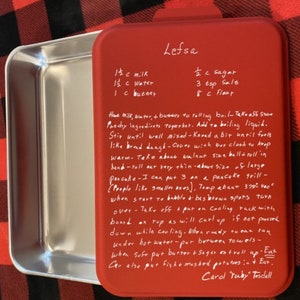 Lefsa
1½ c milk
½ c sugar
1½ c Water
3 tsp salt
1 c butter
8 c flour
Heat milk, water, & butter to rolling boil. Take off stove
dry ingredients together. Add to boiling liquid.
Stir until well mixed - Knead a bit until feels
like bread dough - Cover with tea cloth to keep
warm - Take about walnut size ball & roll in
hand - roll out very thin - about size of large
pancake - I can put 3 on a pancake grill -
(People like smaller ones). Temp about
when start to bubble & has brown spots turn
over - Take off & put on cooling rack with
board on top as will curl up if not pressed
down while cooling. When ready to can run
under hot water - put between towels -
when soft put butter & sugar on & roll up - Eat
Can also put fish & mashed potatoes in & Eat.
Carol "Ruby"